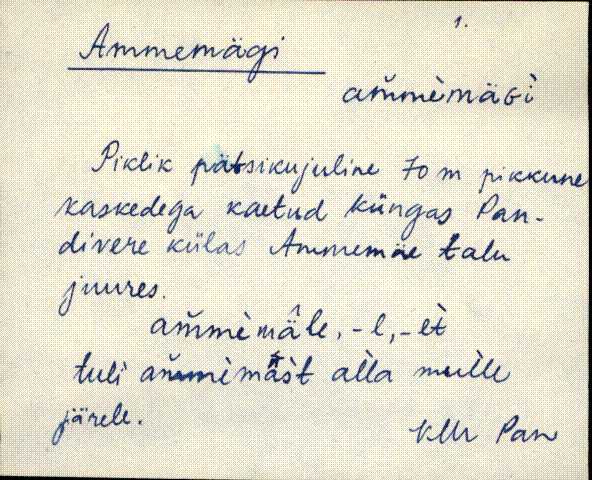 1.
Ammemägi
am̆mèmäɢì
Piklik pätsikujuline 70 m pikkune
kaskedega kaetud küngas Pan-
divere külas Ammemäe talu
juures.
am̆mèmä̂le, -l, -èt
tuli am̆mèmäst alla mulle
järele.
VMr Pan